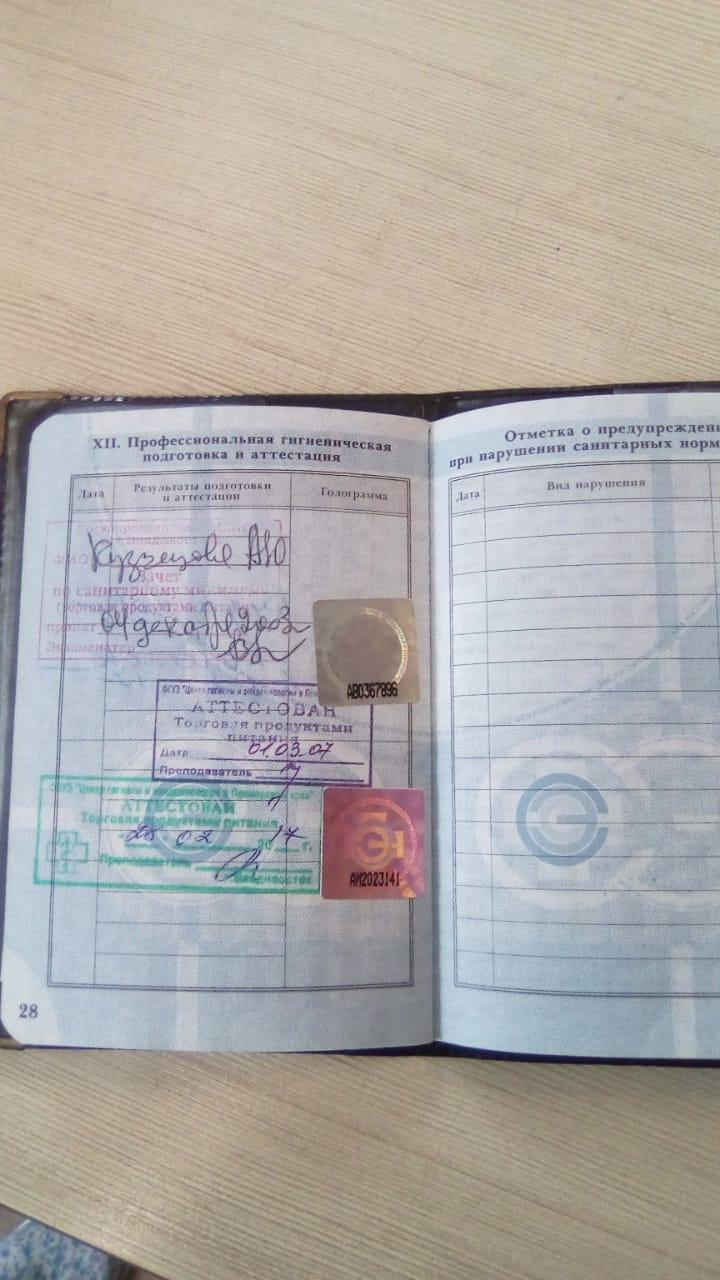 XII. Профессиональная гигиеническая
подготовка и аттестация
Дата
Результаты подготовки
и аттестации
Голограмма
зачет
по санитарному
(торговля продуктами питания)
Экзаменатор
04 дек 2003
АВ0367896
ФГУЗ "Центр гигиены и эпидемиологии в
АТТЕСТОВАН
Торговля продуктами
питания
Дата 01.03.07
Преподаватель
"Центр гигиены и эпидемиологии в Приморском крае"
АТТЕСТОВАН
Торговля продуктами питания
"25" 02 2017 г.
Преподаватель
г. Владивосток
АИ2023141
28
Отметка о предупрежден
при нарушении санитарных норм
Дата
Вид нарушения